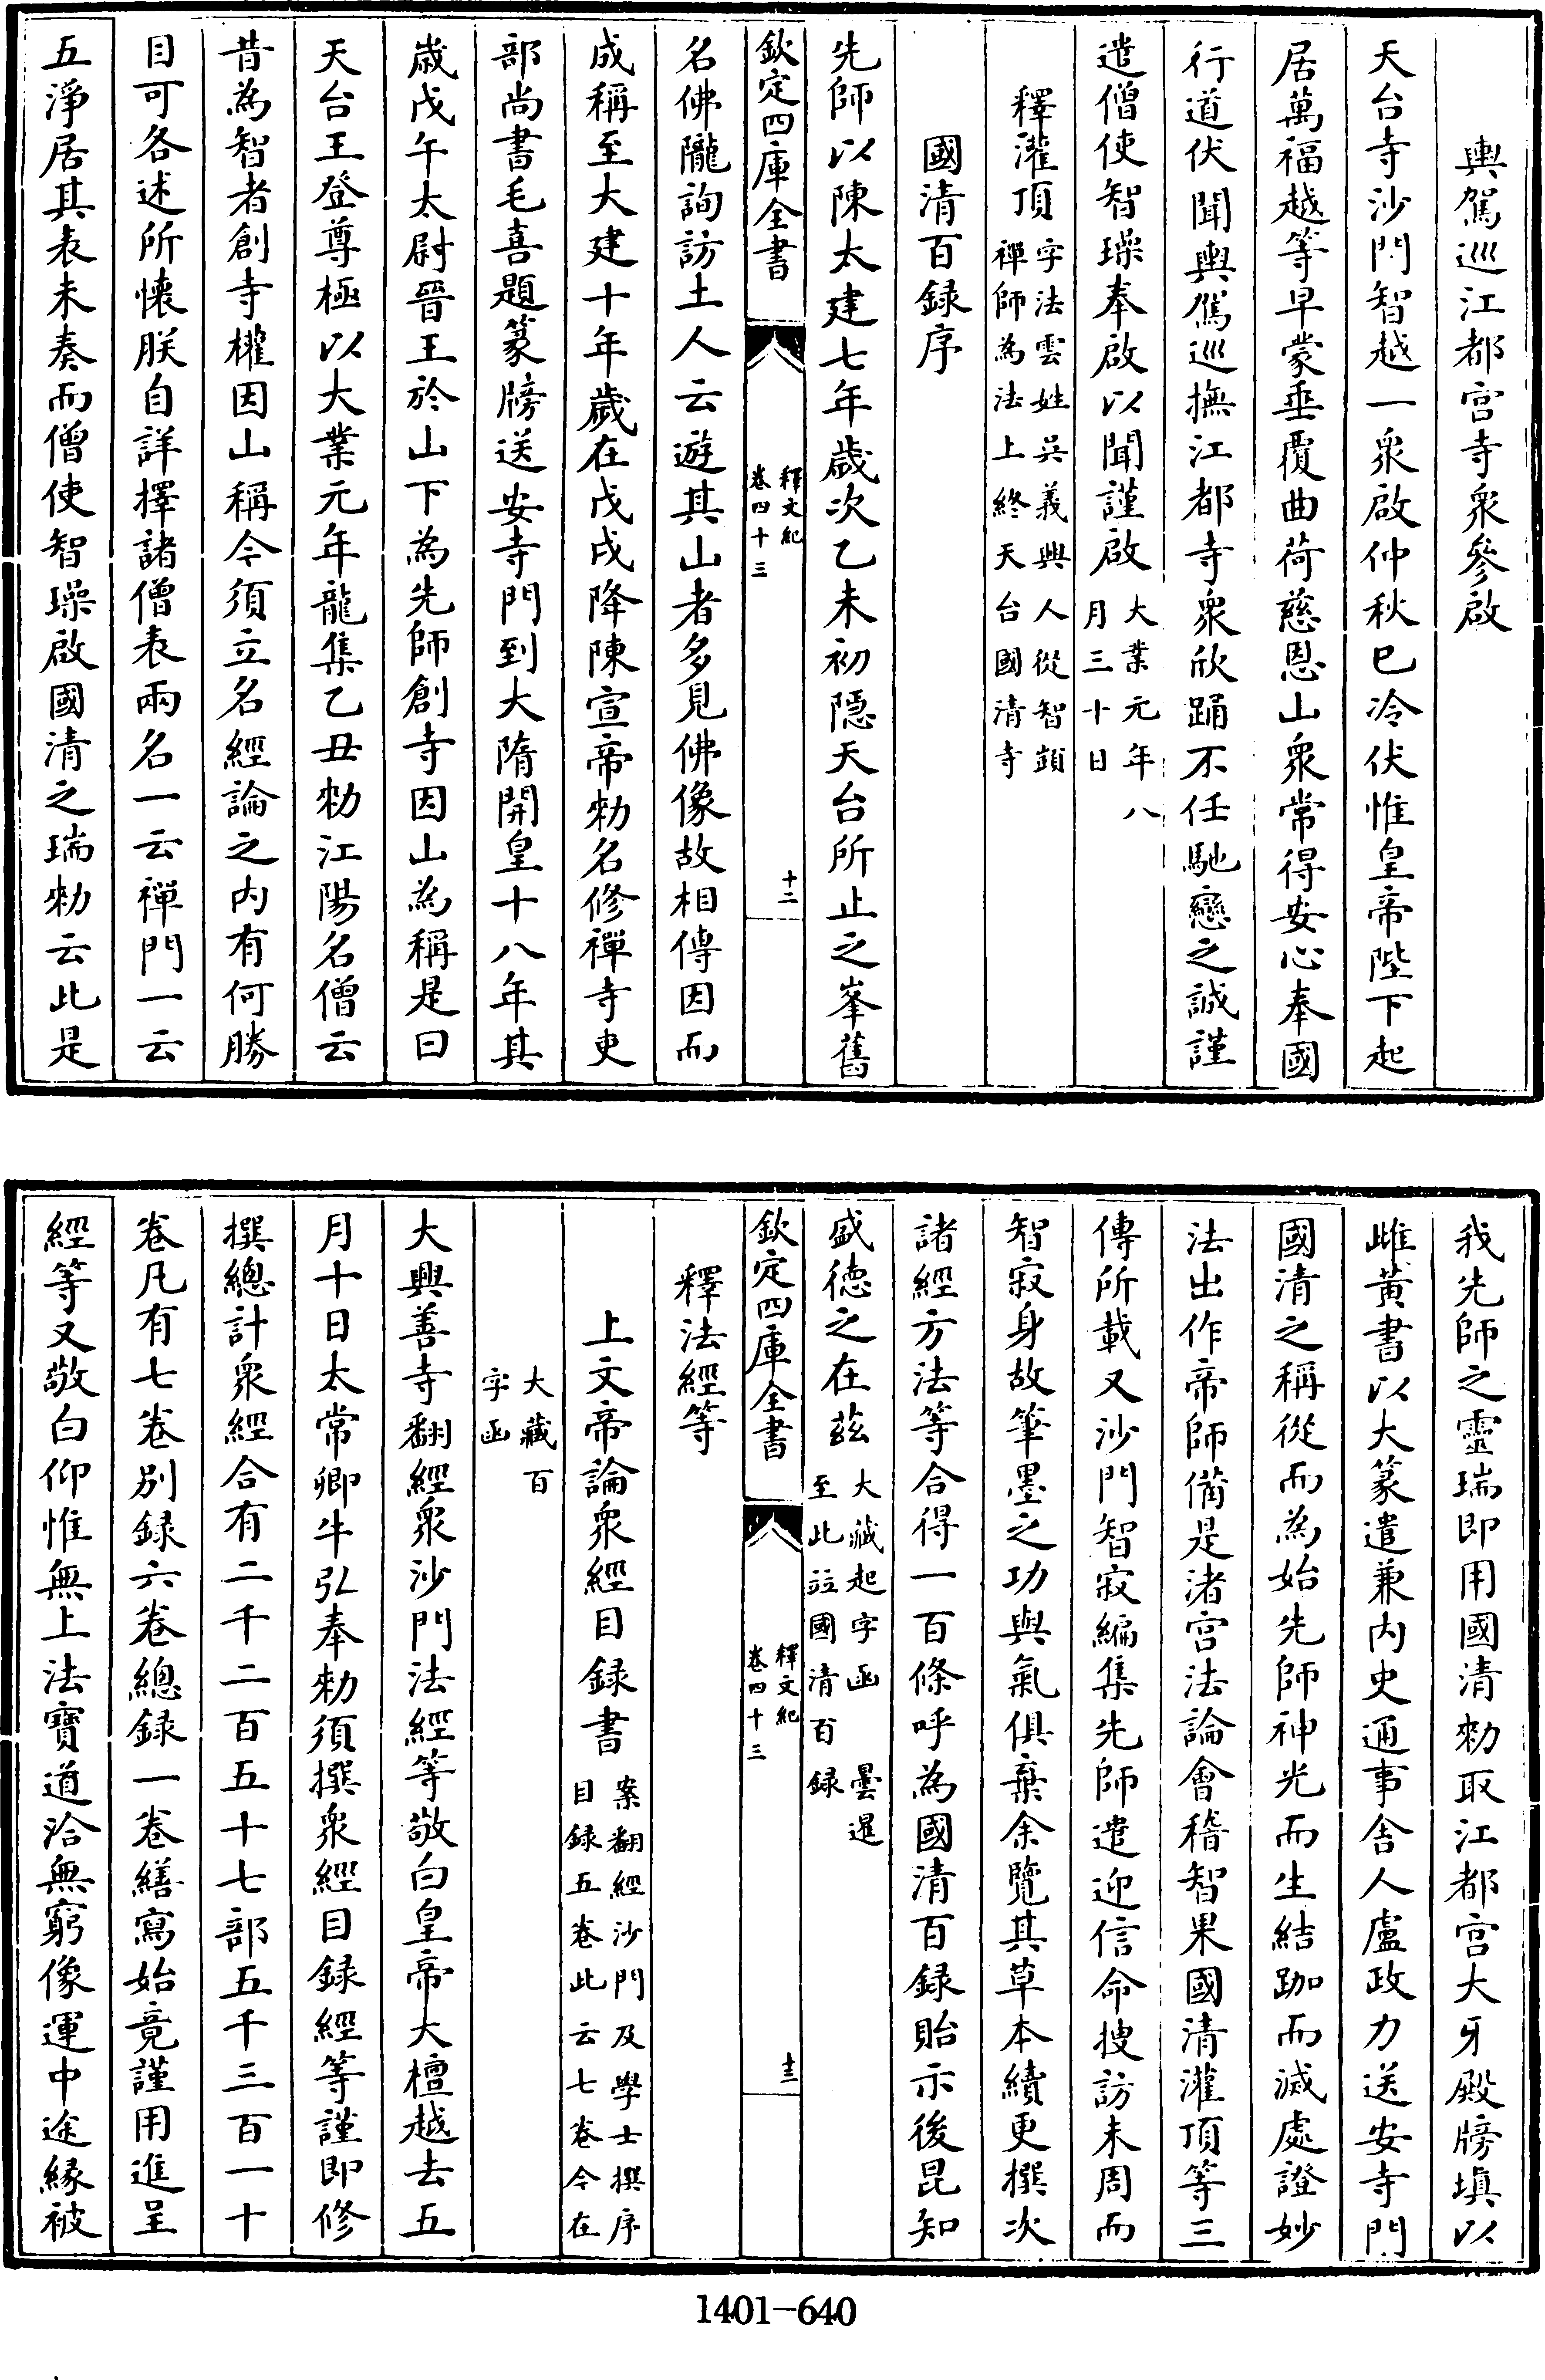 輿駕巡江都宫寺衆參啟
天台寺沙門智越一衆啟仲秋已冷伏惟皇帝陛下起
居萬福越等早蒙垂覆曲荷慈恩山衆常得安心奉國
行道伏聞輿駕巡撫江都寺衆欣踊不任馳戀之誠謹
遣僧使智璪奉啟以聞謹啟大業元年八月三十日
釋灌頂字法雲姓吳義興人從智顗禪師為法上終天台國清寺
國清百録序
先師以陳太建七年歲次乙未初隱天台所止之峯舊
欽定四庫全書 釋文紀卷四十三 十二
名佛隴詢訪土人云遊其山者多見佛像故相傳因而
成稱至大建十年歲在戊戌降陳宣帝勅名修禪寺吏
部尚書毛喜題篆牓送安寺門到大隋開皇十八年其
歲戊午太尉晉王於山下為先師創寺因山為稱是曰
天台王登尊極以大業元年龍集乙丑勅江陽名僧云
昔為智者創寺權因山稱今須立名經論之内有何勝
目可各述所懷朕自詳擇諸僧表兩名一云禪門一云
五淨居其表未奏而僧使智璪啟國清之瑞勅云此是
我先師之靈瑞即用國清勅取江都宫大牙殿牓填以
雌黄書以大篆遣兼内史通事舍人盧政力送安寺門
國清之稱從而為始先師神光而生結跏而滅處證妙
法出作帝師備是渚宫法論會稽智果國清灌頂等三
傳所載又沙門智寂編集先師遣迎信命搜訪未周而
智寂身故筆墨之功與氣俱棄余覽其草本續更撰次
諸經方法等合得一百條呼為國清百録貽示後昆知
盛德之在兹大藏起字函 曇暹至此竝國清百録
欽定四庫全書 釋文紀卷四十三 十三
釋法經等
上文帝論衆經目録書案翻經沙門及學士撰序目録五卷此云七卷今在
大藏百字函
大興善寺翻經衆沙門法經等敬白皇帝大檀越去五
月十日太常卿牛弘奉勅須撰衆經目録經等謹即修
撰總計衆經合有二千二百五十七部五千三百一十
卷凡有七卷别録六卷總録一卷繕寫始竟謹用進呈
經等又敬白仰惟無上法寶道洽無窮像運中途緣被
1401-640